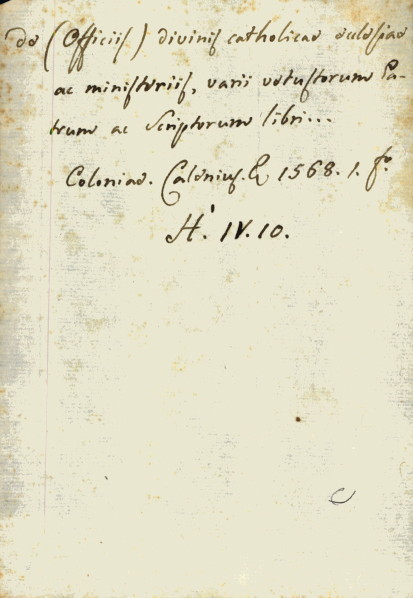 de (Officiis) divinis catholicae ecclesiae
ac ministeriis, varii vetustorum Pa-
trum ac Scriptorum libri...
Coloniae. Calenius. & 1568. 1. fo.
H. IV. 10.